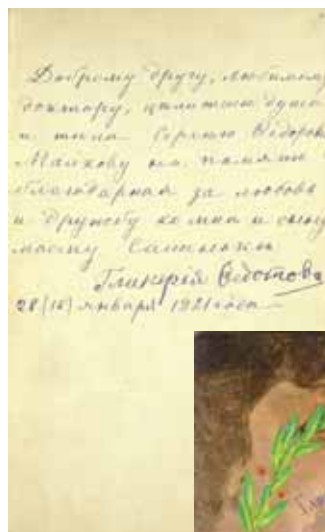 Доброму другу, любимому
доктору, целителю души
и тела Сергею Фёдоров
Майкову на память
благодарная за любовь
и дружбу ко мне и сыну
моему
Гликерия Федотова
28 (15) января 1921 года